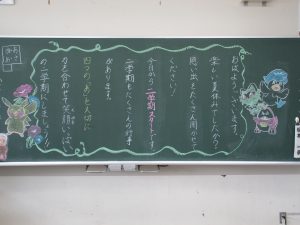 おはようございます。
楽しい夏休みでしたか?
思い出をたくさん聞かせて
ください!
今日から二学期スタートです。
二学期もたくさんの行事
があります。
四つの「あ」を大切に
力を合わせて笑顔いっぱい
の二学期にしましょう!!